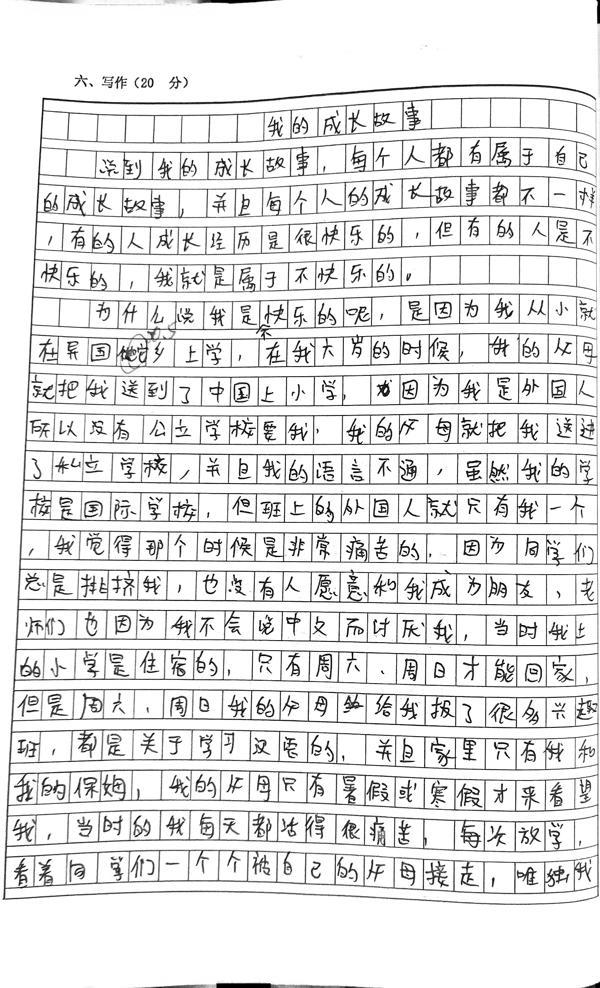 六、写作（20 分）
我的成长故事
说到我的成长故事，每个人都有属于自己
的成长故事，并且每个人的成长故事都不一样
，有的人成长经历是很快乐的，但有的人是不
快乐的，我就是属于不快乐的。
为什么说我是不快乐的呢，是因为我从小就
在异国他乡上学，在我六岁的时候，我的父母
就把我送到了中国上小学，因为我是外国人
所以没有公立学校要我，我的父母就把我送进
了私立学校，并且我的语言不通，虽然我的学
校是国际学校，但班上的外国人就只有我一个
，我觉得那个时候是非常痛苦的，因为同学们
总是排挤我，也没有人愿意和我成为朋友，老
师们也因为我不会说中文而讨厌我，当时我上
的小学是住宿的，只有周六、周日才能回家，
但是周六、周日我的父母给我报了很多兴趣
班，都是关于学习汉语的，并且家里只有我和
我的保姆，我的父母只有暑假或寒假才来看望
我，当时的我每天都活得很痛苦，每次放学，
看着同学们一个个被自己的父母接走，唯独我